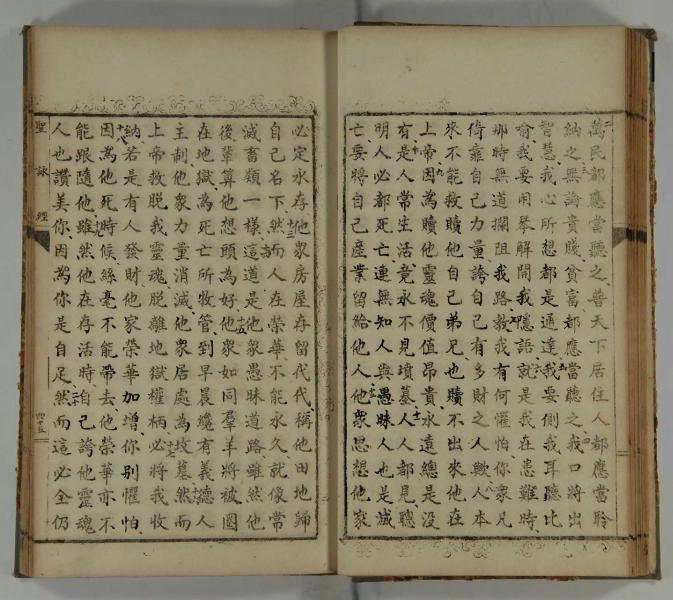 萬民都應當聽之普天下居住人都應當聆
納之無論貴賤貧富都應當聽之我口將出
智慧我心所想都是通達我要側我耳聽比
喻我要用琴解開我隱語就是我在患難時
那時無道攔阻我路教我有何懼怕你衆凡
倚靠自己力量誇自己有多財之人欺人本
來不能救贖他自己弟兄也贖不出來他在
上帝因為贖他靈魂價值昂貴永遠總是沒
有是人常生活竟永不見墳墓人人都見聰
明人必都死亡連無知人與愚昧人也是滅
亡要將自己產業留給他人他衆思想他家
必定永存他衆房屋存留代代稱他田地歸
自己名下然而人在榮華不能永久就像常
滅畜類一樣這道是他衆愚昧道路雖然他
後輩算他想頭為好他衆如同羣羊將被圈
在地獄為死亡所牧管到早晨纔有義德人
主制他衆力量消滅他衆居處為坟墓然而
上帝救脫我靈魂脫離地獄權柄必將我收
納若是有人發財他家榮華加增你別懼怕
因為他死時候絲毫不能帶去他榮華亦不
能跟隨他雖然他在存活時自己誇他靈魂
人也讚美你因為你是自足然而這必全仍
聖詠經
四十五